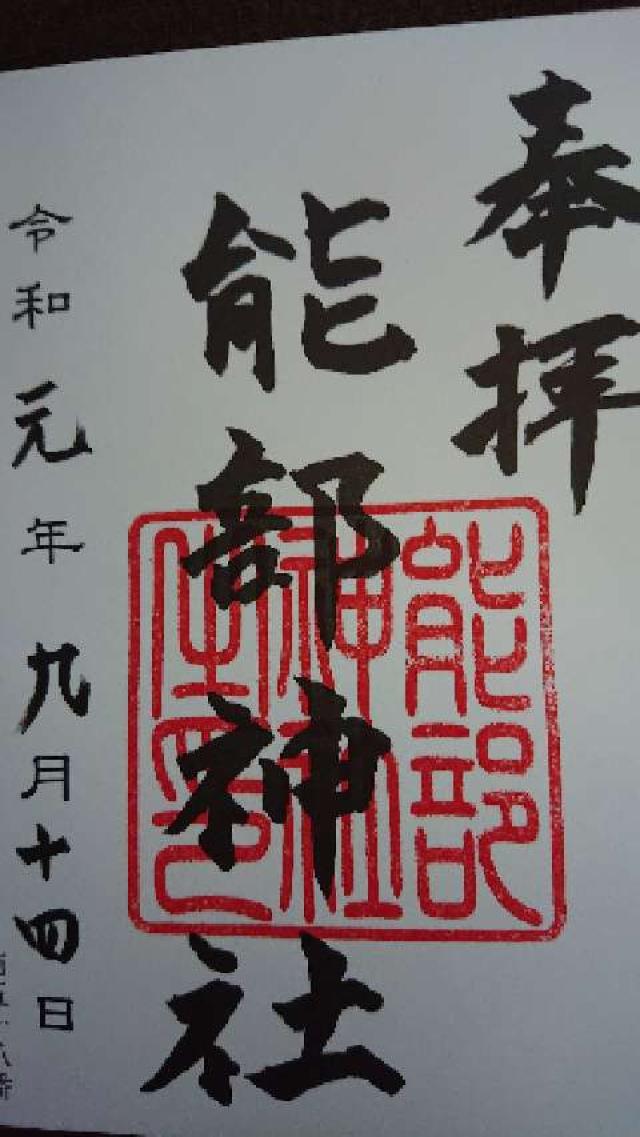 奉拝
能部神社
能部
神社
之印
令和元年九月十四日